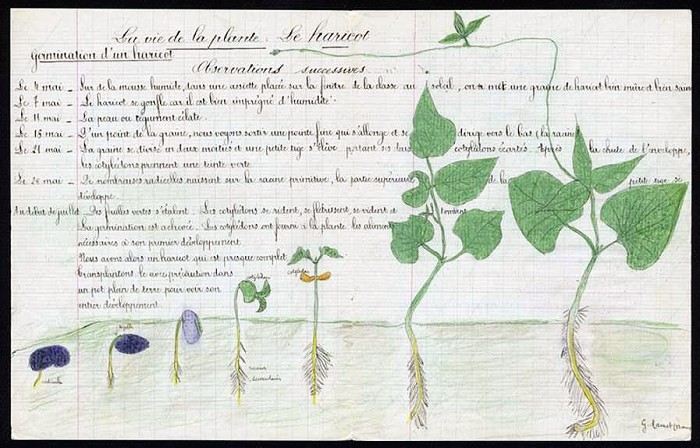 La vie de la plante. Le haricot
Germination d'un haricot
Observations successives.
Le 4 mai - Sur de la mousse humide, dans une assiette placée sur la fenêtre de la classe au soleil, on a mit une graine de haricot bien mûre et bien saine
Le 7 mai - Le haricot se gonfle car il est bien imprégné d'humidité.
Le 11 mai - La peau ou tégument éclate.
Le 15 mai - D'un point de la graine, nous voyons sortir une pointe fine qui s'allonge et se dirige vers le bas (la racine)
Le 21 mai - La graine se divise en deux moitiés et une petite tige s'élève portant les deux cotylédons écartés. Après la chute de l'enveloppe,
les cotylédons prennent une teinte verte.
Le 28 mai - De nombreuses radicelles naissent sur la racine primitive, la partie supérieure de la petite tige se
développe.
Au début de juillet - Des feuilles vertes s'étalent. Les cotylédons se rident, se flétrissent, se vident et tombent.
La germination est achevée. Les cotylédons ont fourni à la plante les aliments
nécessaires à son premier développement
Nous avons alors un haricot qui est presque complet
transplantons le avec précaution dans
un pot plein de terre pour voir son
entier développement
cotylédon
cotylédon
radicelle
racines
G.